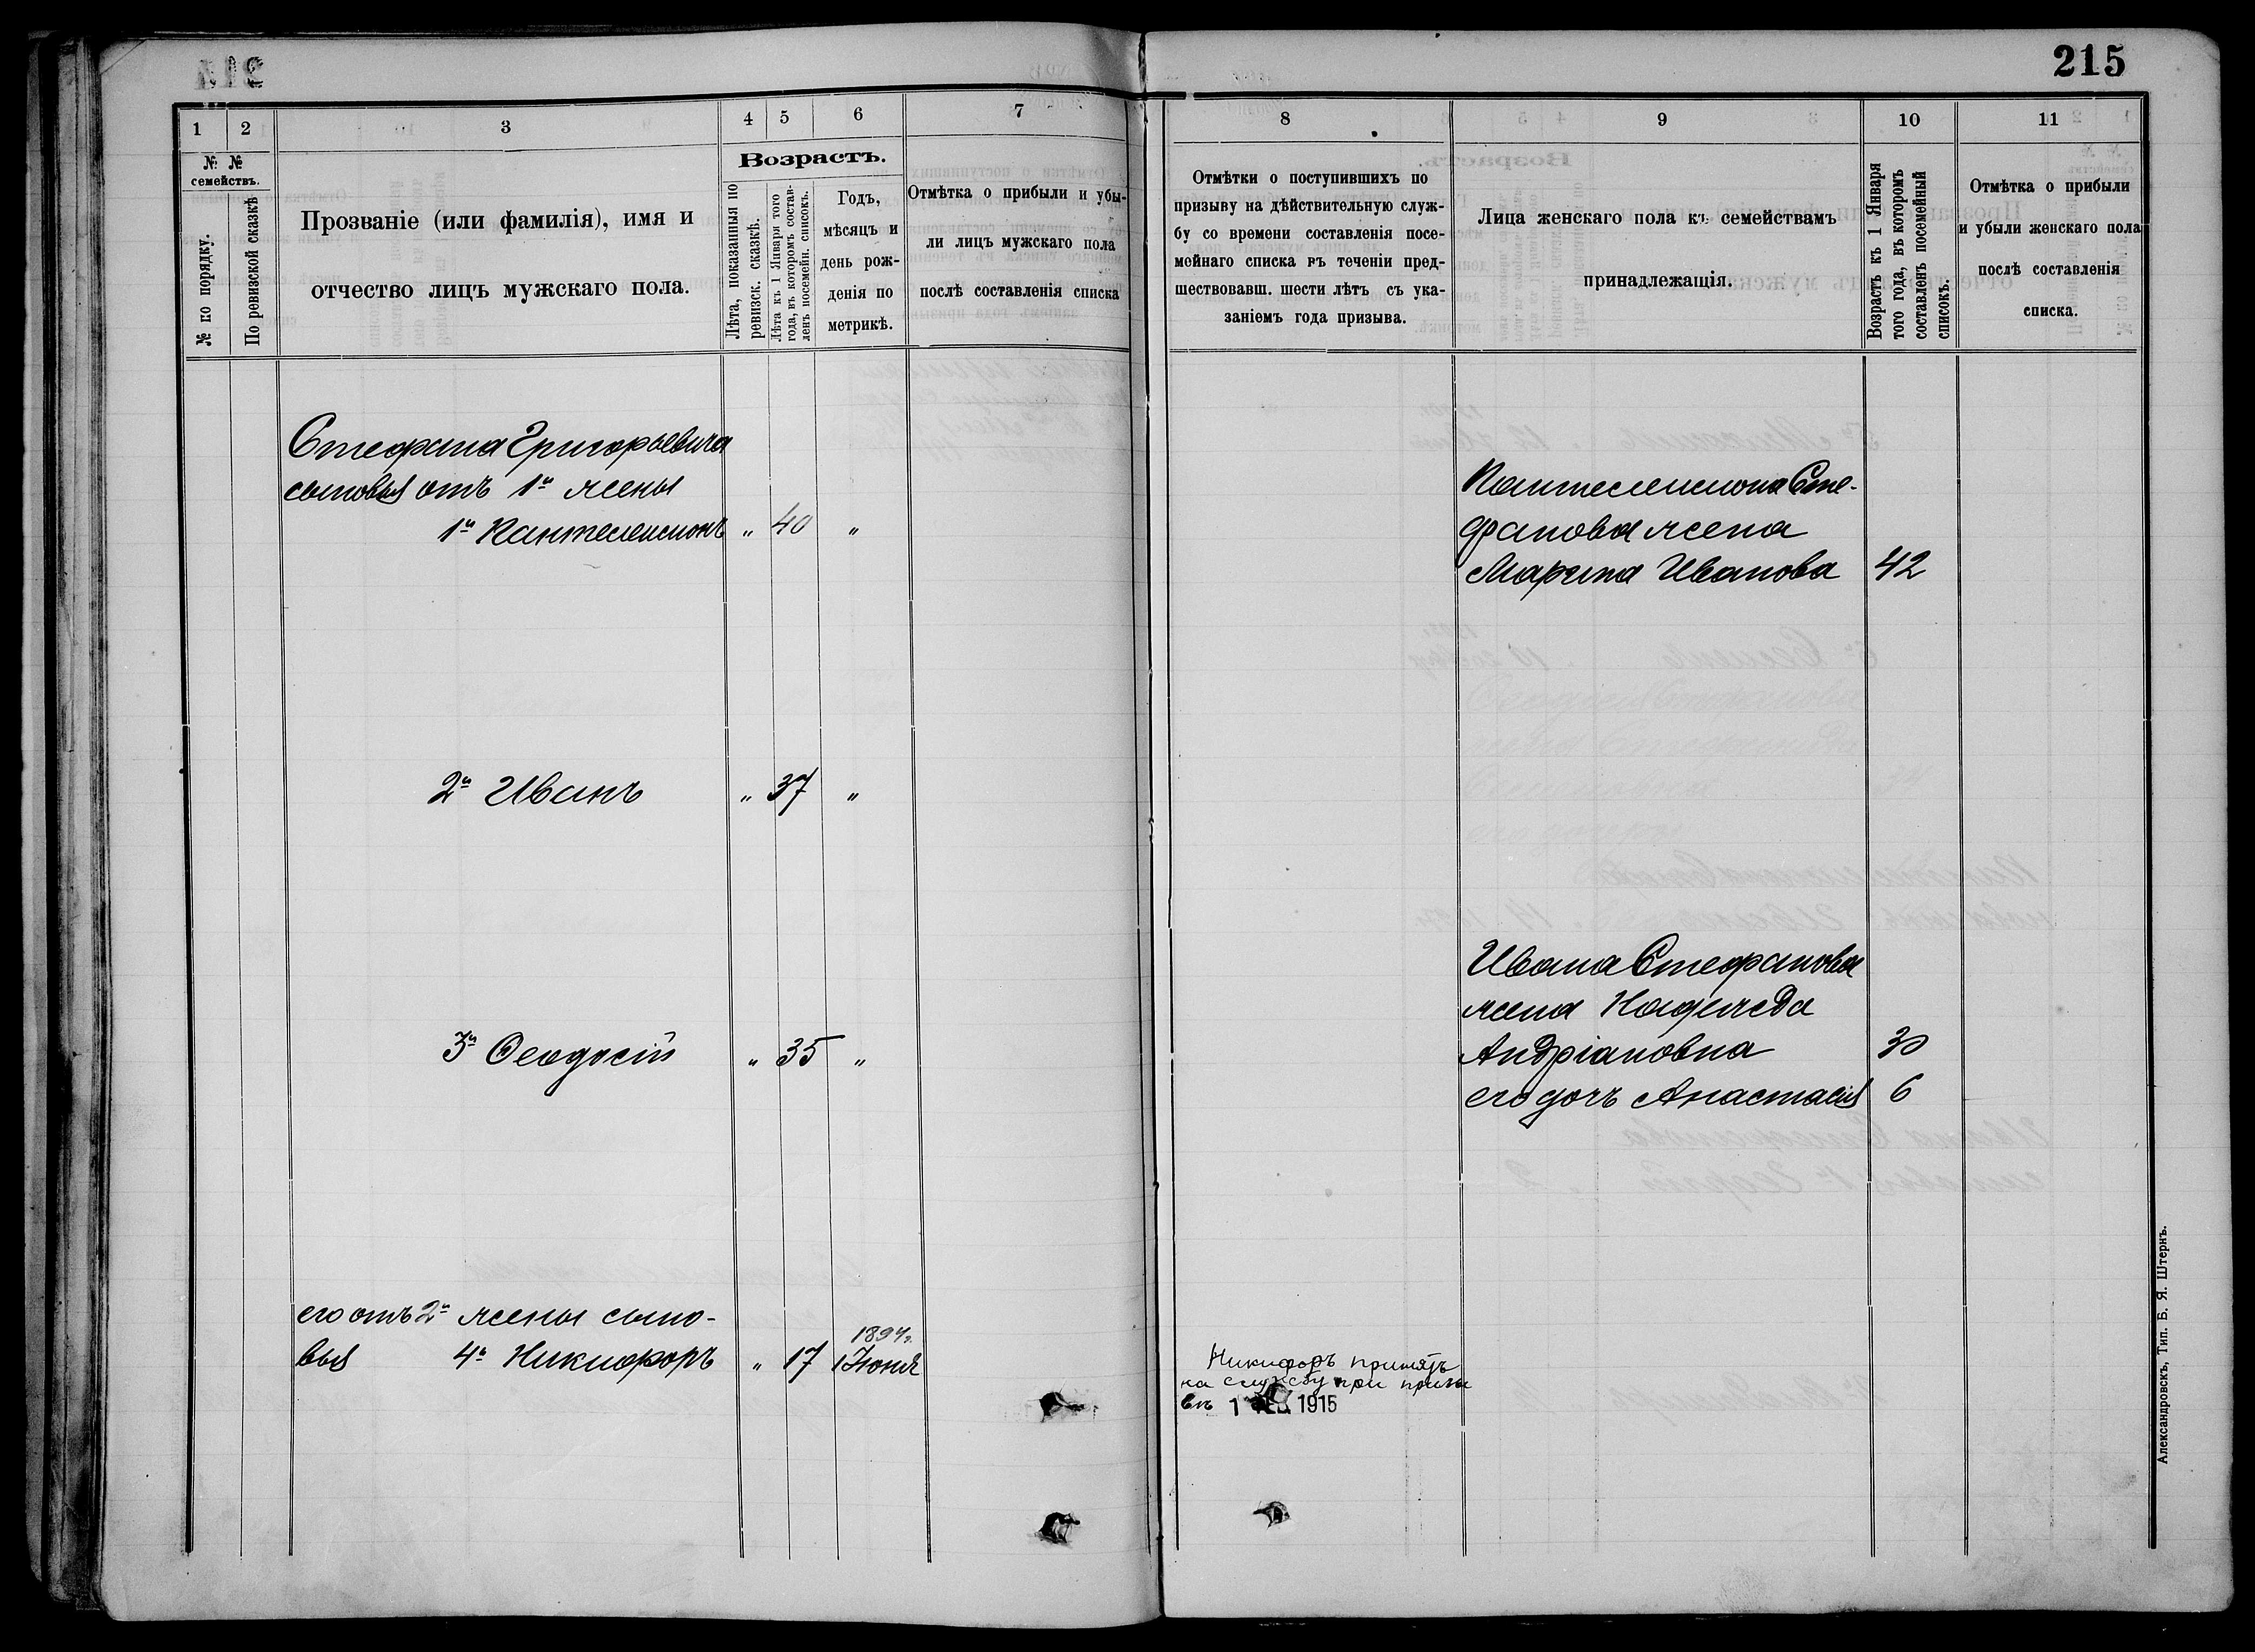 215
1 2 3 4 5 6 7
№ № семействъ.
№ по порядку.
По ревизской сказкѣ
Прозваніе (или фамилія), имя и
отчество лицъ мужскаго пола.
Возрастъ.
Лѣта, показанныя по
ревизск. сказкѣ.
Лѣта къ 1 Января того
года, въ которомъ состав-
ленъ посемейн. списокъ.
Годъ,
мѣсяцъ и
день рож-
денія по
метрикѣ.
Отмѣтка о прибыли и убы-
ли лицъ мужскаго пола
послѣ составленія списка
Стефана Григорьевича
сыновья отъ 1й жены
1й Пантелеимонъ „ 40 „
2й Иванъ „ 37 „
3й Ѳеодосій „ 35 „
его отъ 2й жены сыно-
1897г.
вья 4й Никифоръ „ 17 1 Іюня
8 9 10 11
Отмѣтки о поступившихъ по
призыву на дѣйствительную служ-
бу со времени составленія посе-
мейнаго списка въ теченіи пред-
шествовавш. шести лѣтъ съ ука-
заніемъ года призыва.
Лица женскаго пола къ семействамъ
принадлежащія.
Возрастъ къ 1 Января
того года, въ которомъ
составленъ посемейный
списокъ.
Отмѣтка о прибыли
и убыли женскаго пола
послѣ составленія
списка.
Пантелеимона Сте-
фанова жена
Марина Иванова 42
Ивана Стефанова
жена Надежда
Андріановна 30
его дочь Анастасія 6
Никифоръ принятъ
на службу при призы
вѣ 1 1915
Александровскъ, Тип. Б. Я. Штернъ.